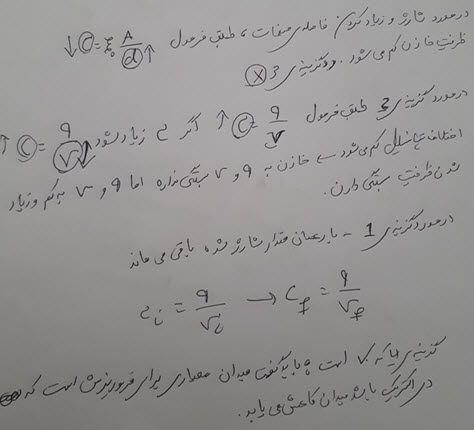 در مورد شارژ و زیاد کردن فاصله‌ی صفحات، طبق فرمول ↓C = ε₀ A/d↑
ظرفیت خازن کم می‌شود. گزینه‌ی 3 X
در مورد گزینه‌ی 2 طبق فرمول ↑C = q/V اگر C زیاد شود ↑C = q/V↓
اختلاف پتانسیل کم می‌شود خازن به q و V بستگی نداره اما q و V به کم و زیاد
شدن ظرفیت بستگی دارن.
در مورد گزینه‌ی 1 - بار همان مقدار شارژ شده باقی می‌ماند
Cᵢ = q/Vᵢ → C_f = q/V_f
گزینه‌ی که است باید گفت میدان معیاری برای فروریزش است که
دی الکتریک باشد میدان کاهش می‌یابد.